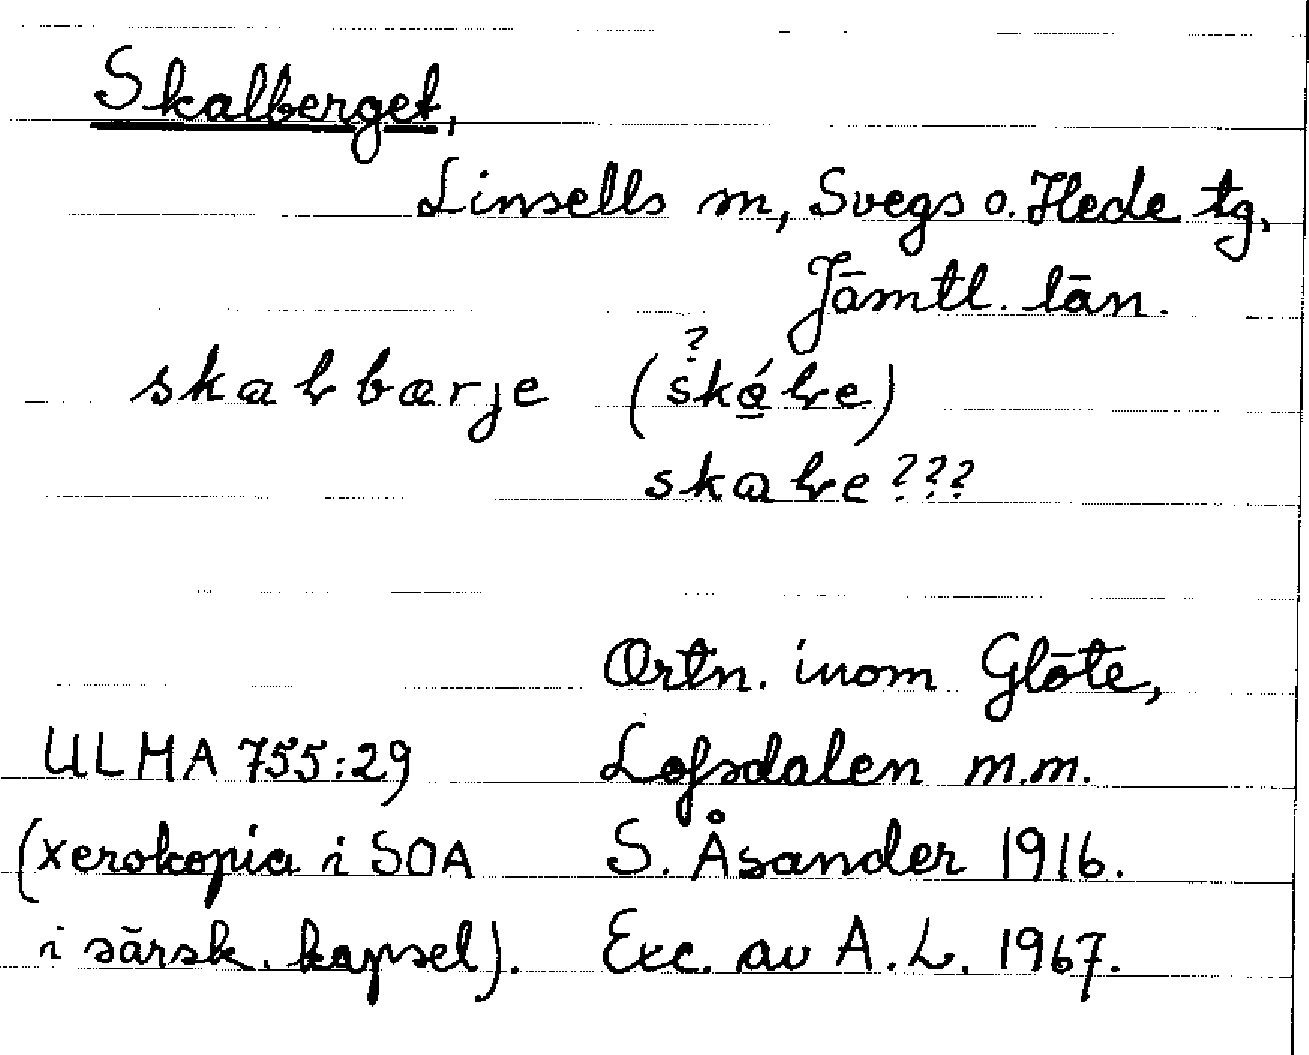 Skalberget,
Linsells sn, Svegs o. Hede tg,
Jämtl. län.
skaɫbærje (skáɫe)
?
skaɫe ???
Ortn. inom Glöte,
ULMA 755:29 Lofsdalen m.m.
(xerokopia i SOA S. Åsander 1916.
i särsk. kapsel). Exc. av A.L. 1967.